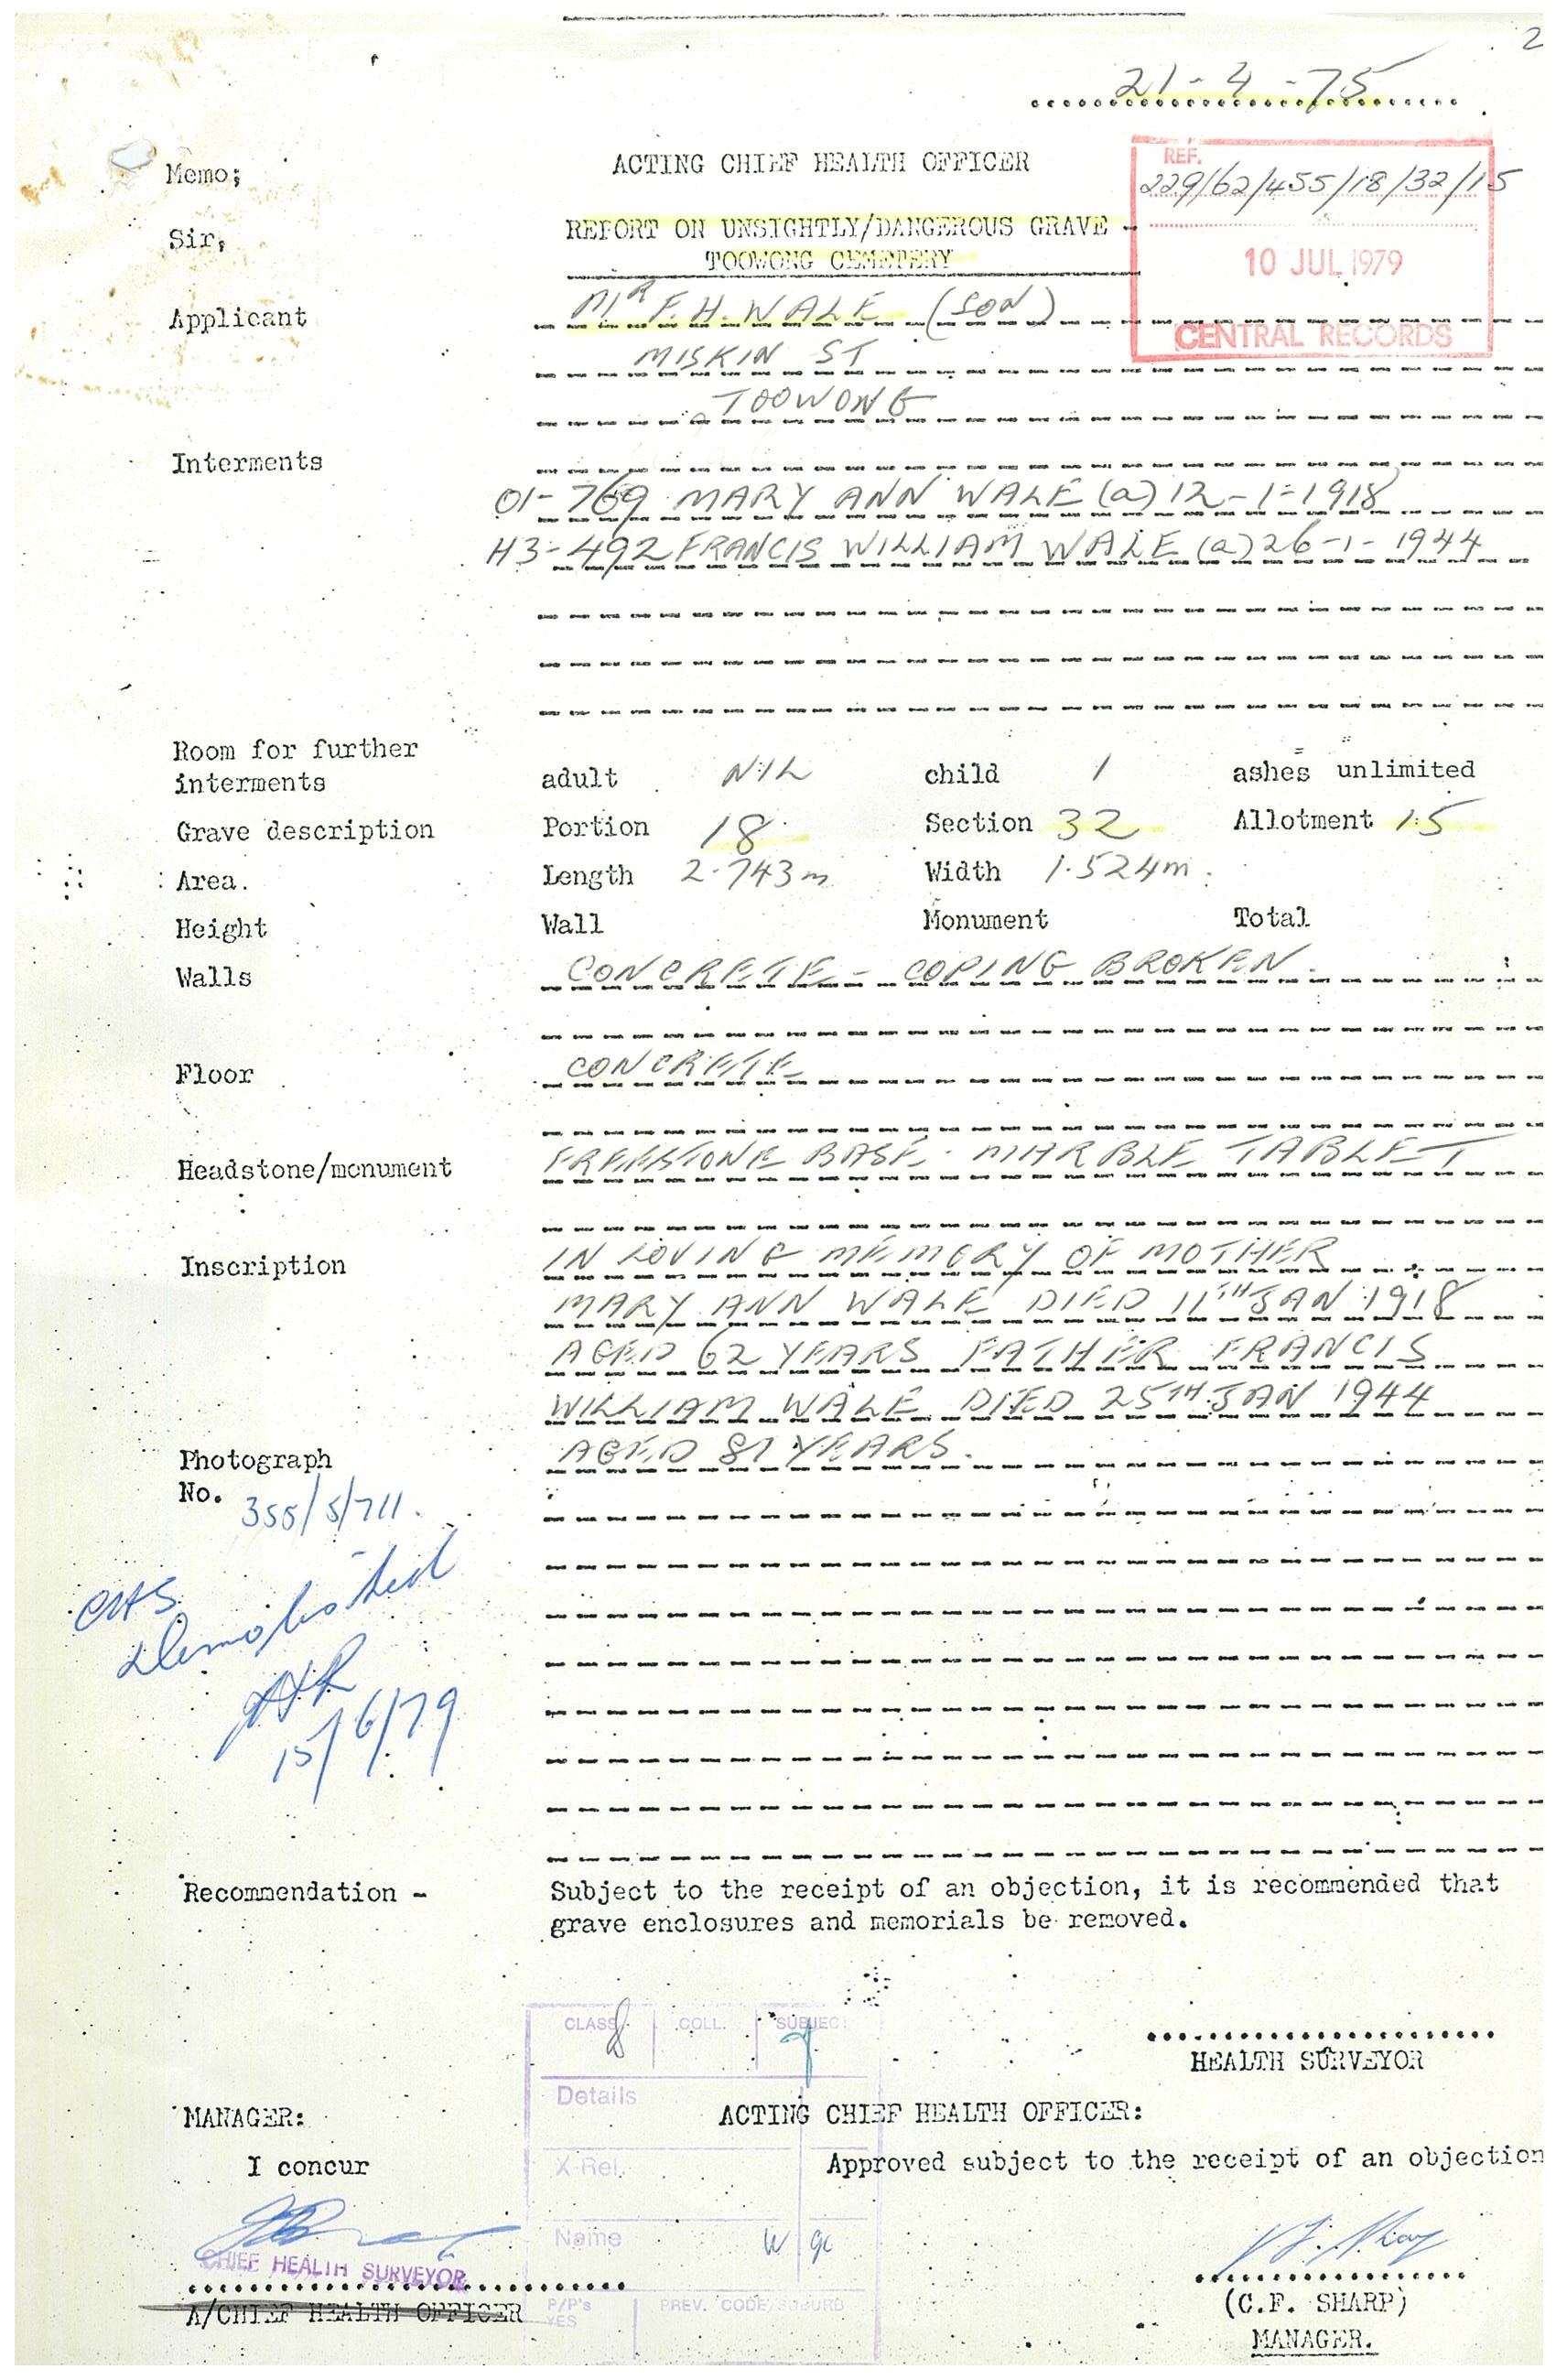 2
21-4-75
Memo;
ACTING CHIEF HEALTH OFFICER
REF.
229/62/455/18/32/15
Sir,
REPORT ON UNSIGHTLY/DANGEROUS GRAVE -
TOOWONG CEMETERY
10 JUL 1979
CENTRAL RECORDS
Applicant
MR F.H. WALE (SON)
MISKIN ST
TOOWONG
Interments
01-769 MARY ANN WALE (a) 12-1-1918
H3-492 FRANCIS WILLIAM WALE (a) 26-1-1944
Room for further
interments adult NIL child 1 ashes unlimited
Grave description Portion 18 Section 32 Allotment 15
Area. Length 2.743m Width 1.524m.
Height Wall Monument Total
Walls CONCRETE - COPING BROKEN.
Floor CONCRETE
Headstone/monument FREESTONE BASE. MARBLE TABLET
Inscription IN LOVING MEMORY OF MOTHER
MARY ANN WALE DIED 11TH JAN 1918
AGED 62 YEARS FATHER FRANCIS
WILLIAM WALE DIED 25TH JAN 1944
AGED 81 YEARS.
Photograph
No. 355/5/711.
Demolished
15/6/79
Recommendation -
Subject to the receipt of an objection, it is recommended that
grave enclosures and memorials be removed.
CLASS COLL. SUBJECT
HEALTH SURVEYOR
Details
MANAGER:
ACTING CHIEF HEALTH OFFICER:
I concur
X-Rel.
Approved subject to the receipt of an objection
Name
CHIEF HEALTH SURVEYOR
A/CHIEF HEALTH OFFICER
P/P's
YES
PREV. CODE/SUBURB
(C.F. SHARP)
MANAGER.